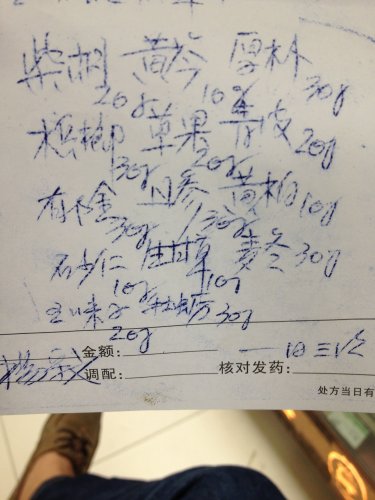 柴胡 黄芩 厚朴
20g 10g 30g
槟榔 草果 青皮 20g
30g 20g
郁金 丹参 黄柏 10g
30g 30g
砂仁 甘草 麦冬 30g
10g 10g
五味子 牡蛎 30g
20g
金额: 一日三次
调配: 核对发药:
处方当日有